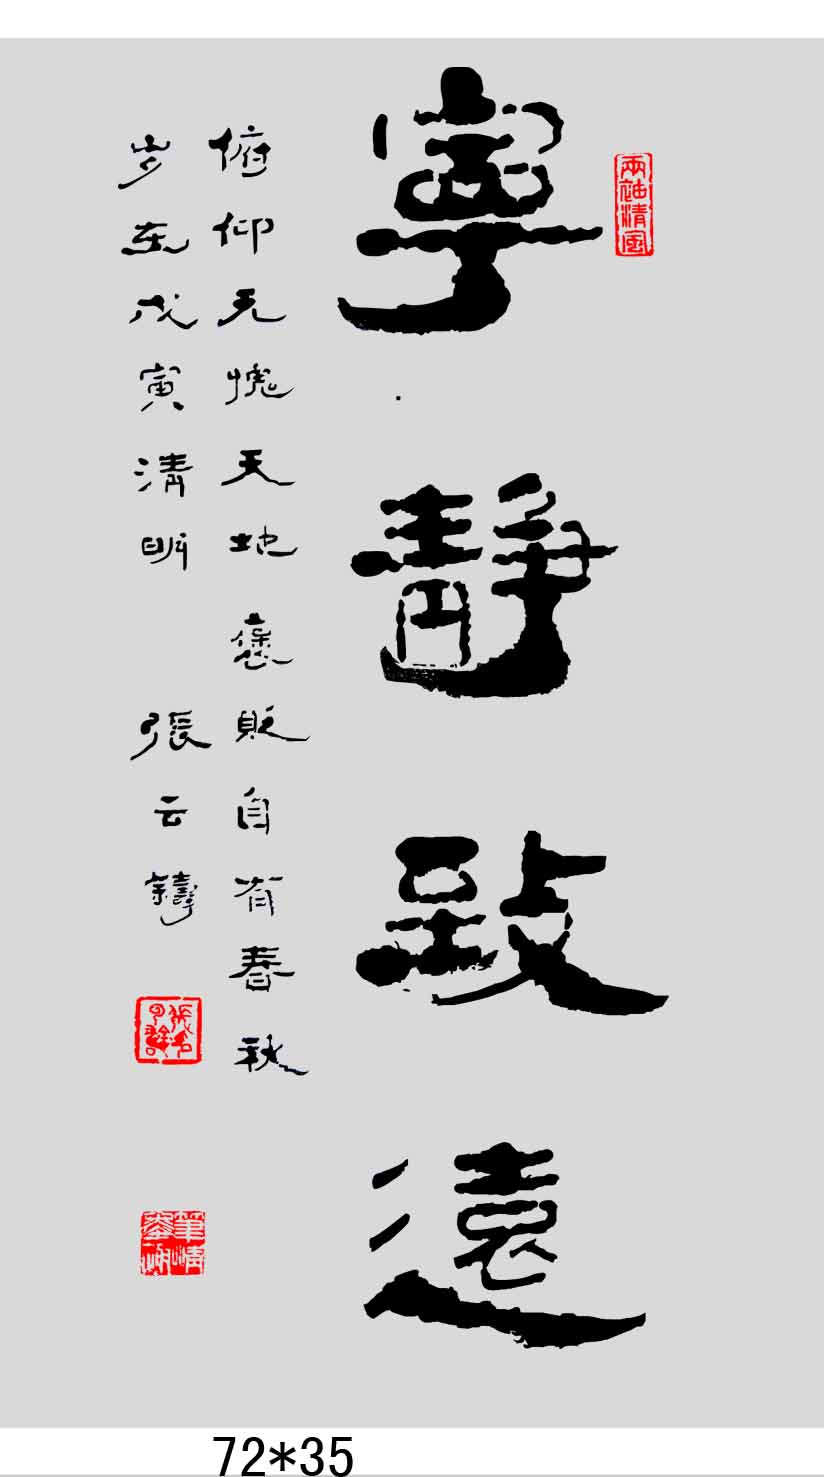 寧靜致遠
俯仰无愧天地褒貶自有春秋
岁在戊寅清明 張云鑄
兩袖清風
72*35